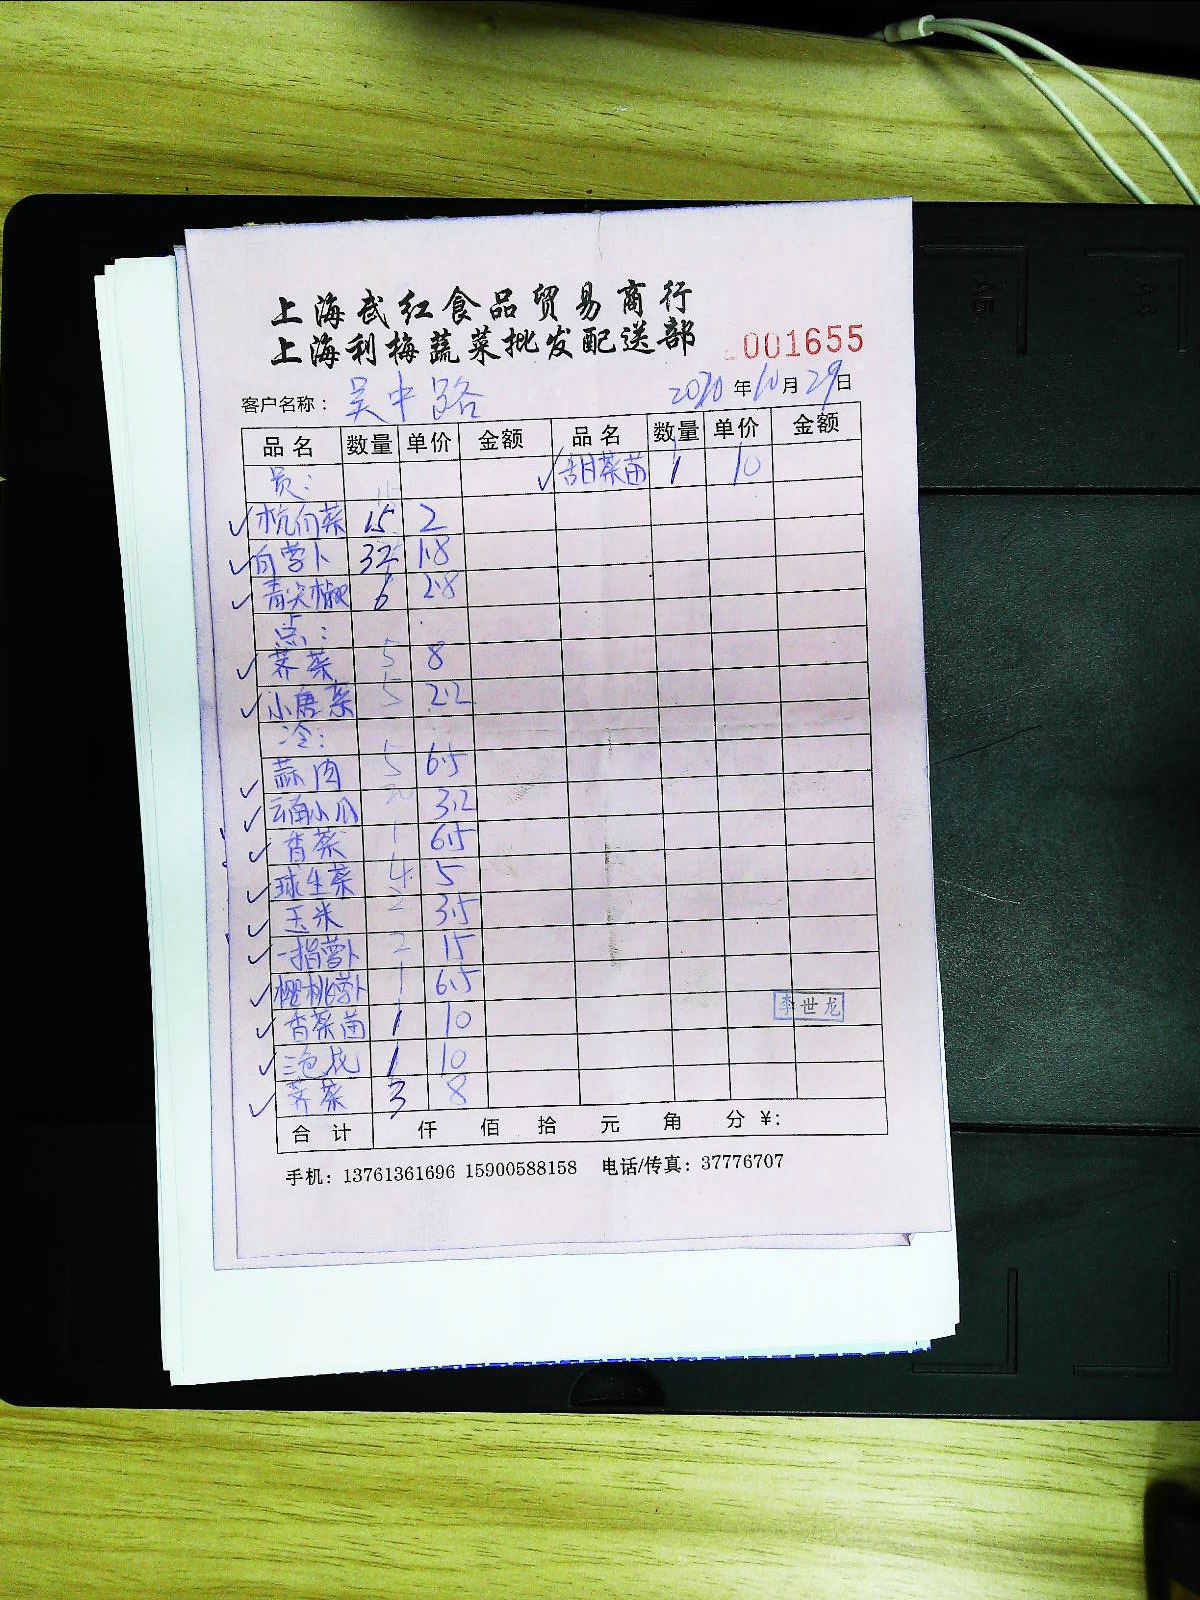 上海武红食品贸易商行
上海利梅蔬菜批发配送部
001655
客户名称： 吴中路 2020 年 10 月 29 日
品名 数量 单价 金额 品名 数量 单价 金额
员： 甜菜苗 1 10
杭白菜 15 2
白萝卜 32 1.8
青尖椒 6 2.8
点：
荠菜 5 8
小唐菜 5 2.2
冷：
蒜肉 5 6.5
云南小瓜 3.2
香菜 1 6.5
球生菜 4 5
玉米 2 3.5
一指萝卜 2 15
樱桃萝卜 1 6.5
香菜苗 1 10
李世龙
三色 1 10
荠菜 3 8
合计 仟 佰 拾 元 角 分 ¥:
手机：13761361696 15900588158 电话/传真：37776707
A5
A4